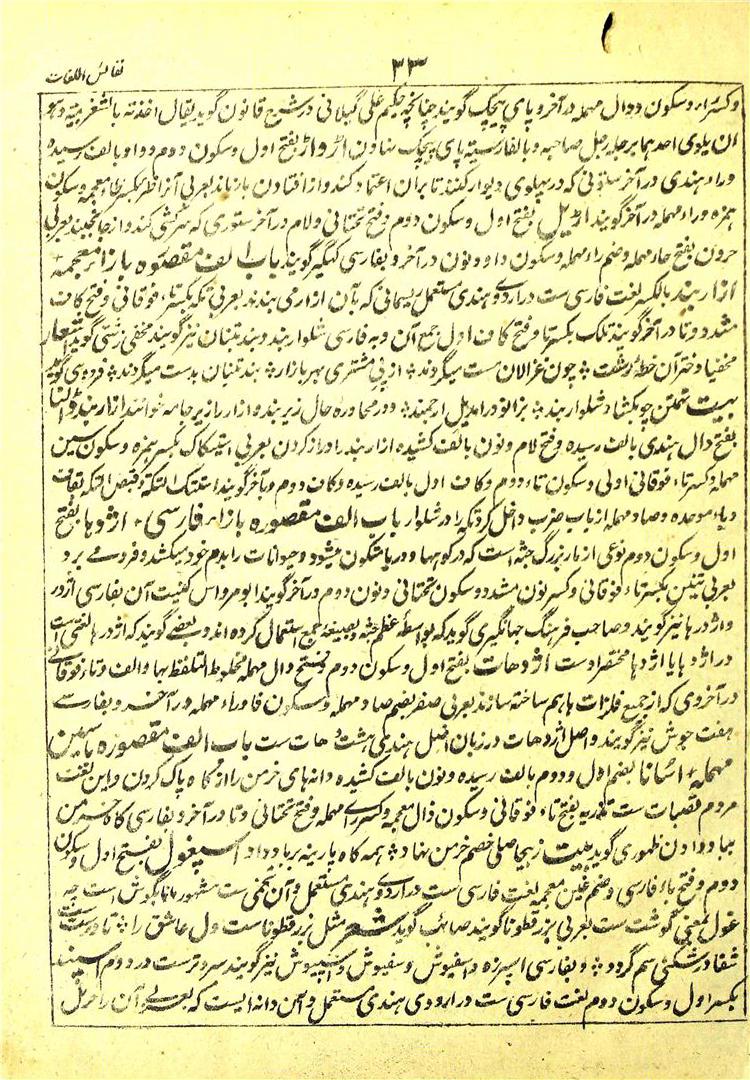 ۳۳
نفائس اللغات
وکسر راء وسکون دوال مهمله در آخر و پای پیچک گویند چنانچه حکیم علی گیلانی در شرح قانون گوید یقال اخذته بالشغربیة وهو
ان یلوی احدهما برجله رجل صاحبه وبالفارسیة پای پیچک اڑواڑ بفتح اول وسکون دوم وواو بالف رسیده
وراء هندی در آخر ستونی که در پهلوی دیوار کنند تا بران اعتماد کند و از افتادن باز ماند بعربی آنرا ظئر بکسر ظاء معجمه وسکون
همزه وراء مهمله در آخر گویند اڑیل بفتح اول وسکون دوم وفتح تحتانی ولام در آخر ستوری که سرکشی کند و از جا نجنبد بعربی
حرون بفتح حاء مهمله وضم راء مهمله وسکون واو ونون در آخر و بفارسی گویند باب الف مقصوره با زاء معجمه
ازاربند بالکسر لغت فارسی ست در اردوی هندی مستعمل ریسمانی که بآن ازار می بندند بعربی تکه بکسر تاء فوقانی وفتح کاف
مشدد وتا در آخر گویند تکک بکسر تا وفتح کاف اول جمع آن و به فارسی شلواربند و بند تنبان نیز گویند مخفی رشتی گوید شعار
چون غزالان مست میگردند از پی مشتری بهر بازار بند تنبان بدست میگردند فردوسی گوید
بیت تهمتن چو بکشاد شلواربند بزانو درآمد یل ارجمند و در محاوره حال زیربند و ازار را زیرجامه خوانند ازاربند ڈالنا
بفتح دال هندی بالف رسیده وفتح لام ونون بالف کشیده ازاربند را در ازار کردن بعربی استتکاک بکسر همزه وسکون سین
مهمله وکسر تاء فوقانی اولی وسکون تاء دوم وکاف اول بالف رسیده وکاف دوم در آخر گویند استتک التکة وقبص التکة بقاف
وباء موحده وصاد مهمله از باب ضرب داخل کرد تکه را در شلوار باب الف مقصوره با زاء فارسی اژدها بفتح
اول وسکون دوم نوعی از مار بزرگ جثه است که در کوهها و دریا متکون میشود و حیوانات را بدم خود میکشد و فرو می برد
بعربی تنین بکسر تاء فوقانی وکسر نون مشدد وسکون تحتانی ونون دوم در آخر گویند ابو مرداس کنیت آن بفارسی اژدر
واژدرها نیز گویند و صاحب فرهنگ جهانگیری گوید که بواسطه عظم جثه بصیغه جمع استعمال کرده اند و بعضی گویند که اژدرها لغتی است
در اژدها یا اژدها مختصر اوست اژدهات بفتح اول وسکون دوم وفتح دال مهمله مخلوط التلفظ بها والف وتاء فوقانی
در آخر روی که از جمیع فلزات باهم ساخته سازند بعربی صفر بضم صاد مهمله وسکون فا وراء مهمله در آخر و بفارسی
هفت جوش نیز گویند و اصل اژدهات در زبان اصل هندی هشت دهات ست باب الف مقصوره با سین
مهمله اسانا بضم اول ودوم بالف رسیده ونون بالف کشیده دانهای خرمن را از کاه پاک کردن و این لغت
مردم قصبات ست تذریه بفتح تاء فوقانی وسکون ذال معجمه وکسر راء مهمله وفتح تحتانی وتا در آخر و بفارسی کاه خرمن
بباد دادن ظهوری گوید بیت ز بیحاصلی خصم خرمن نهاد همه کاه پارینه بر باد داد اسپغول بفتح اول وسکون
دوم وفتح باء فارسی وضم غین معجمه لغت فارسی ست در اردوی هندی مستعمل و آن تخمی ست مشهور مانا بگوش اسپ چه
غول بمعنی گوش ست بعربی بزرقطونا گویند صائب گوید شعر مثل بزرقطوناست دل عاشق را تا درست
شفا در شکنی سم گردد و بفارسی اسپرزه و اسفیوش وسفیوش و اسپیوش نیز گویند سرد و ترست در دوم اسپند
بکسر اول وسکون دوم لغت فارسی ست در اردوی هندی مستعمل و آن دانه ایست که بعربی آنرا حرمل